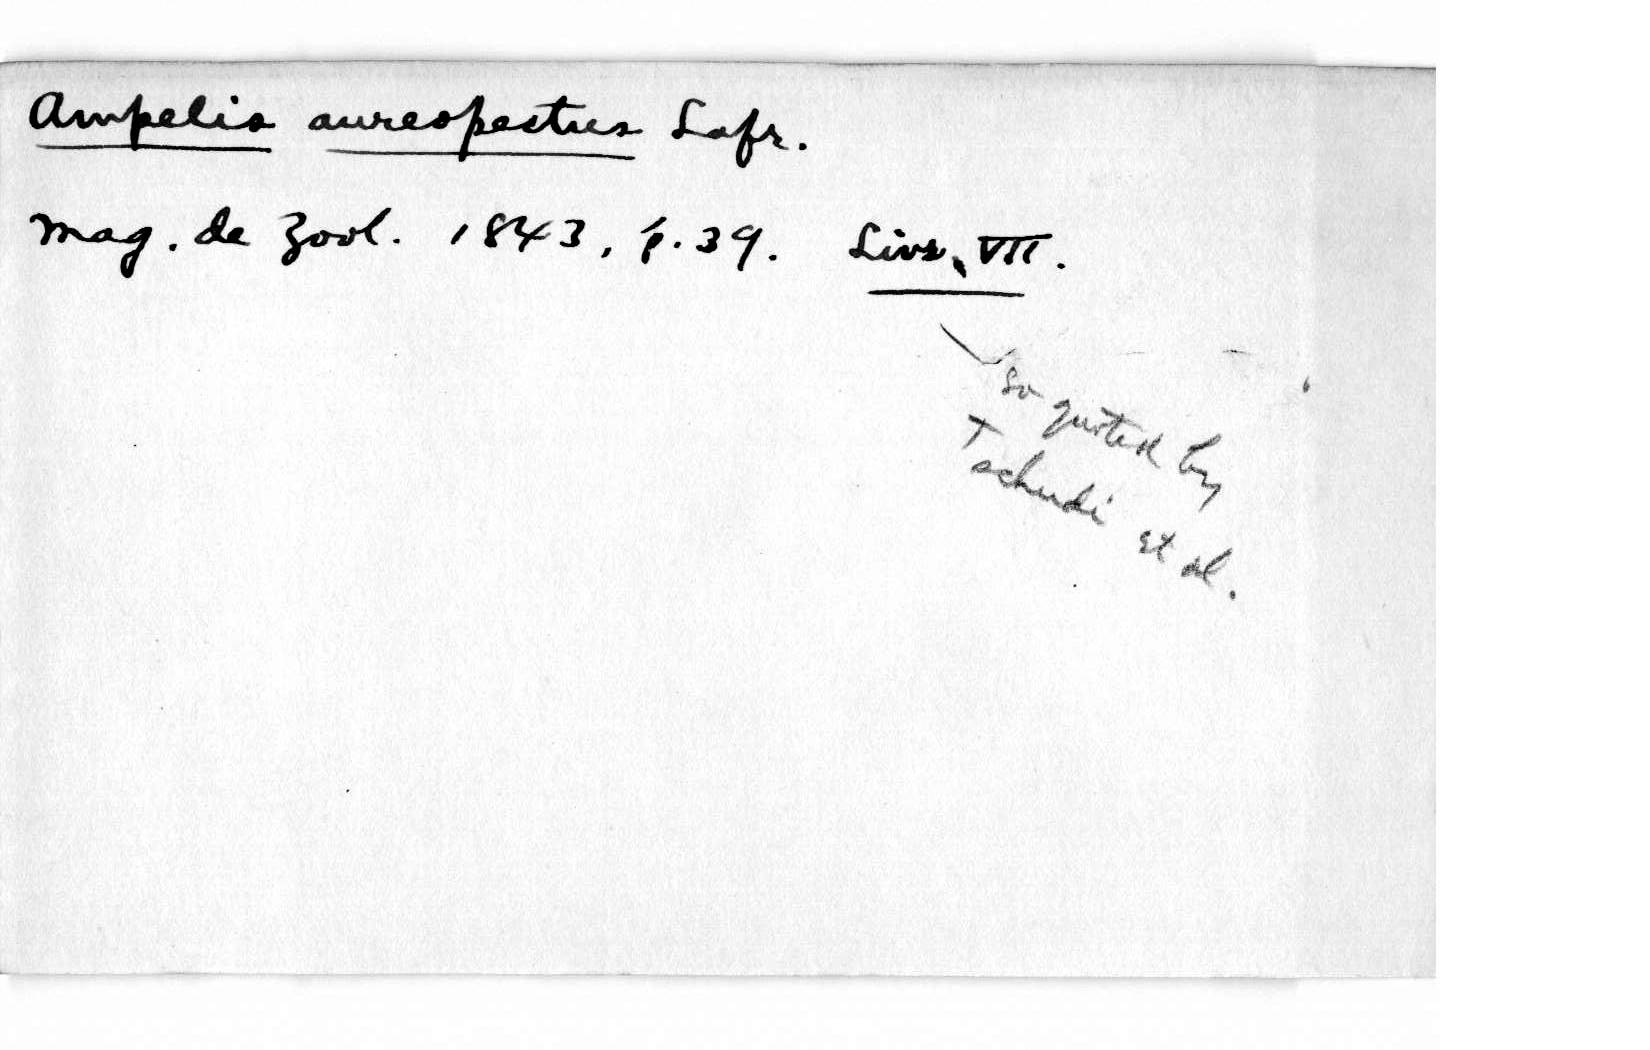 Ampelis aureopectus Lafr.
Mag. de Zool. 1843, p. 39. Livr. VII.
so quoted by
Tschudi et al.